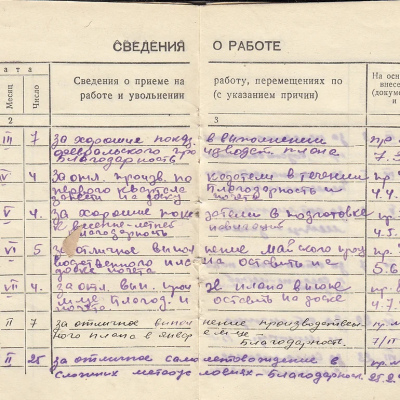 СВЕДЕНИЯ О РАБОТЕ
а т а
Месяц
Число
Сведения о приеме на работу, перемещениях по
работе и увольнении (с указанием причин)
На осн
внесе
(докумен
и
2 3
III 7 за хорошие показ в выполнении пр.
февральского про изводст плана 7.3
Благодарность
IV 4 за отл. произв. по казатели в течении пр.
первого квартала Благодарность и 4.4.
занести на доску почета
V 4. за хорошие пока затели в подготовке
к весенне-летней навигации 4.5.
Благодарность
VI 5 за отличное выпол нение майского произ пр.
водственного пла на оставить на 5.6
доске почета
VII 4. за отл. вып. прои пр.м
оставить на доске 4.7.
почета
II 7 за отличное выпол нение производствен пр.м
ного плана в январе м-це — Благодарность. 7/II
II 25 за отличное само летовождение в пр.м
сложных метеоус ловиях - Благодарност. 25.2.